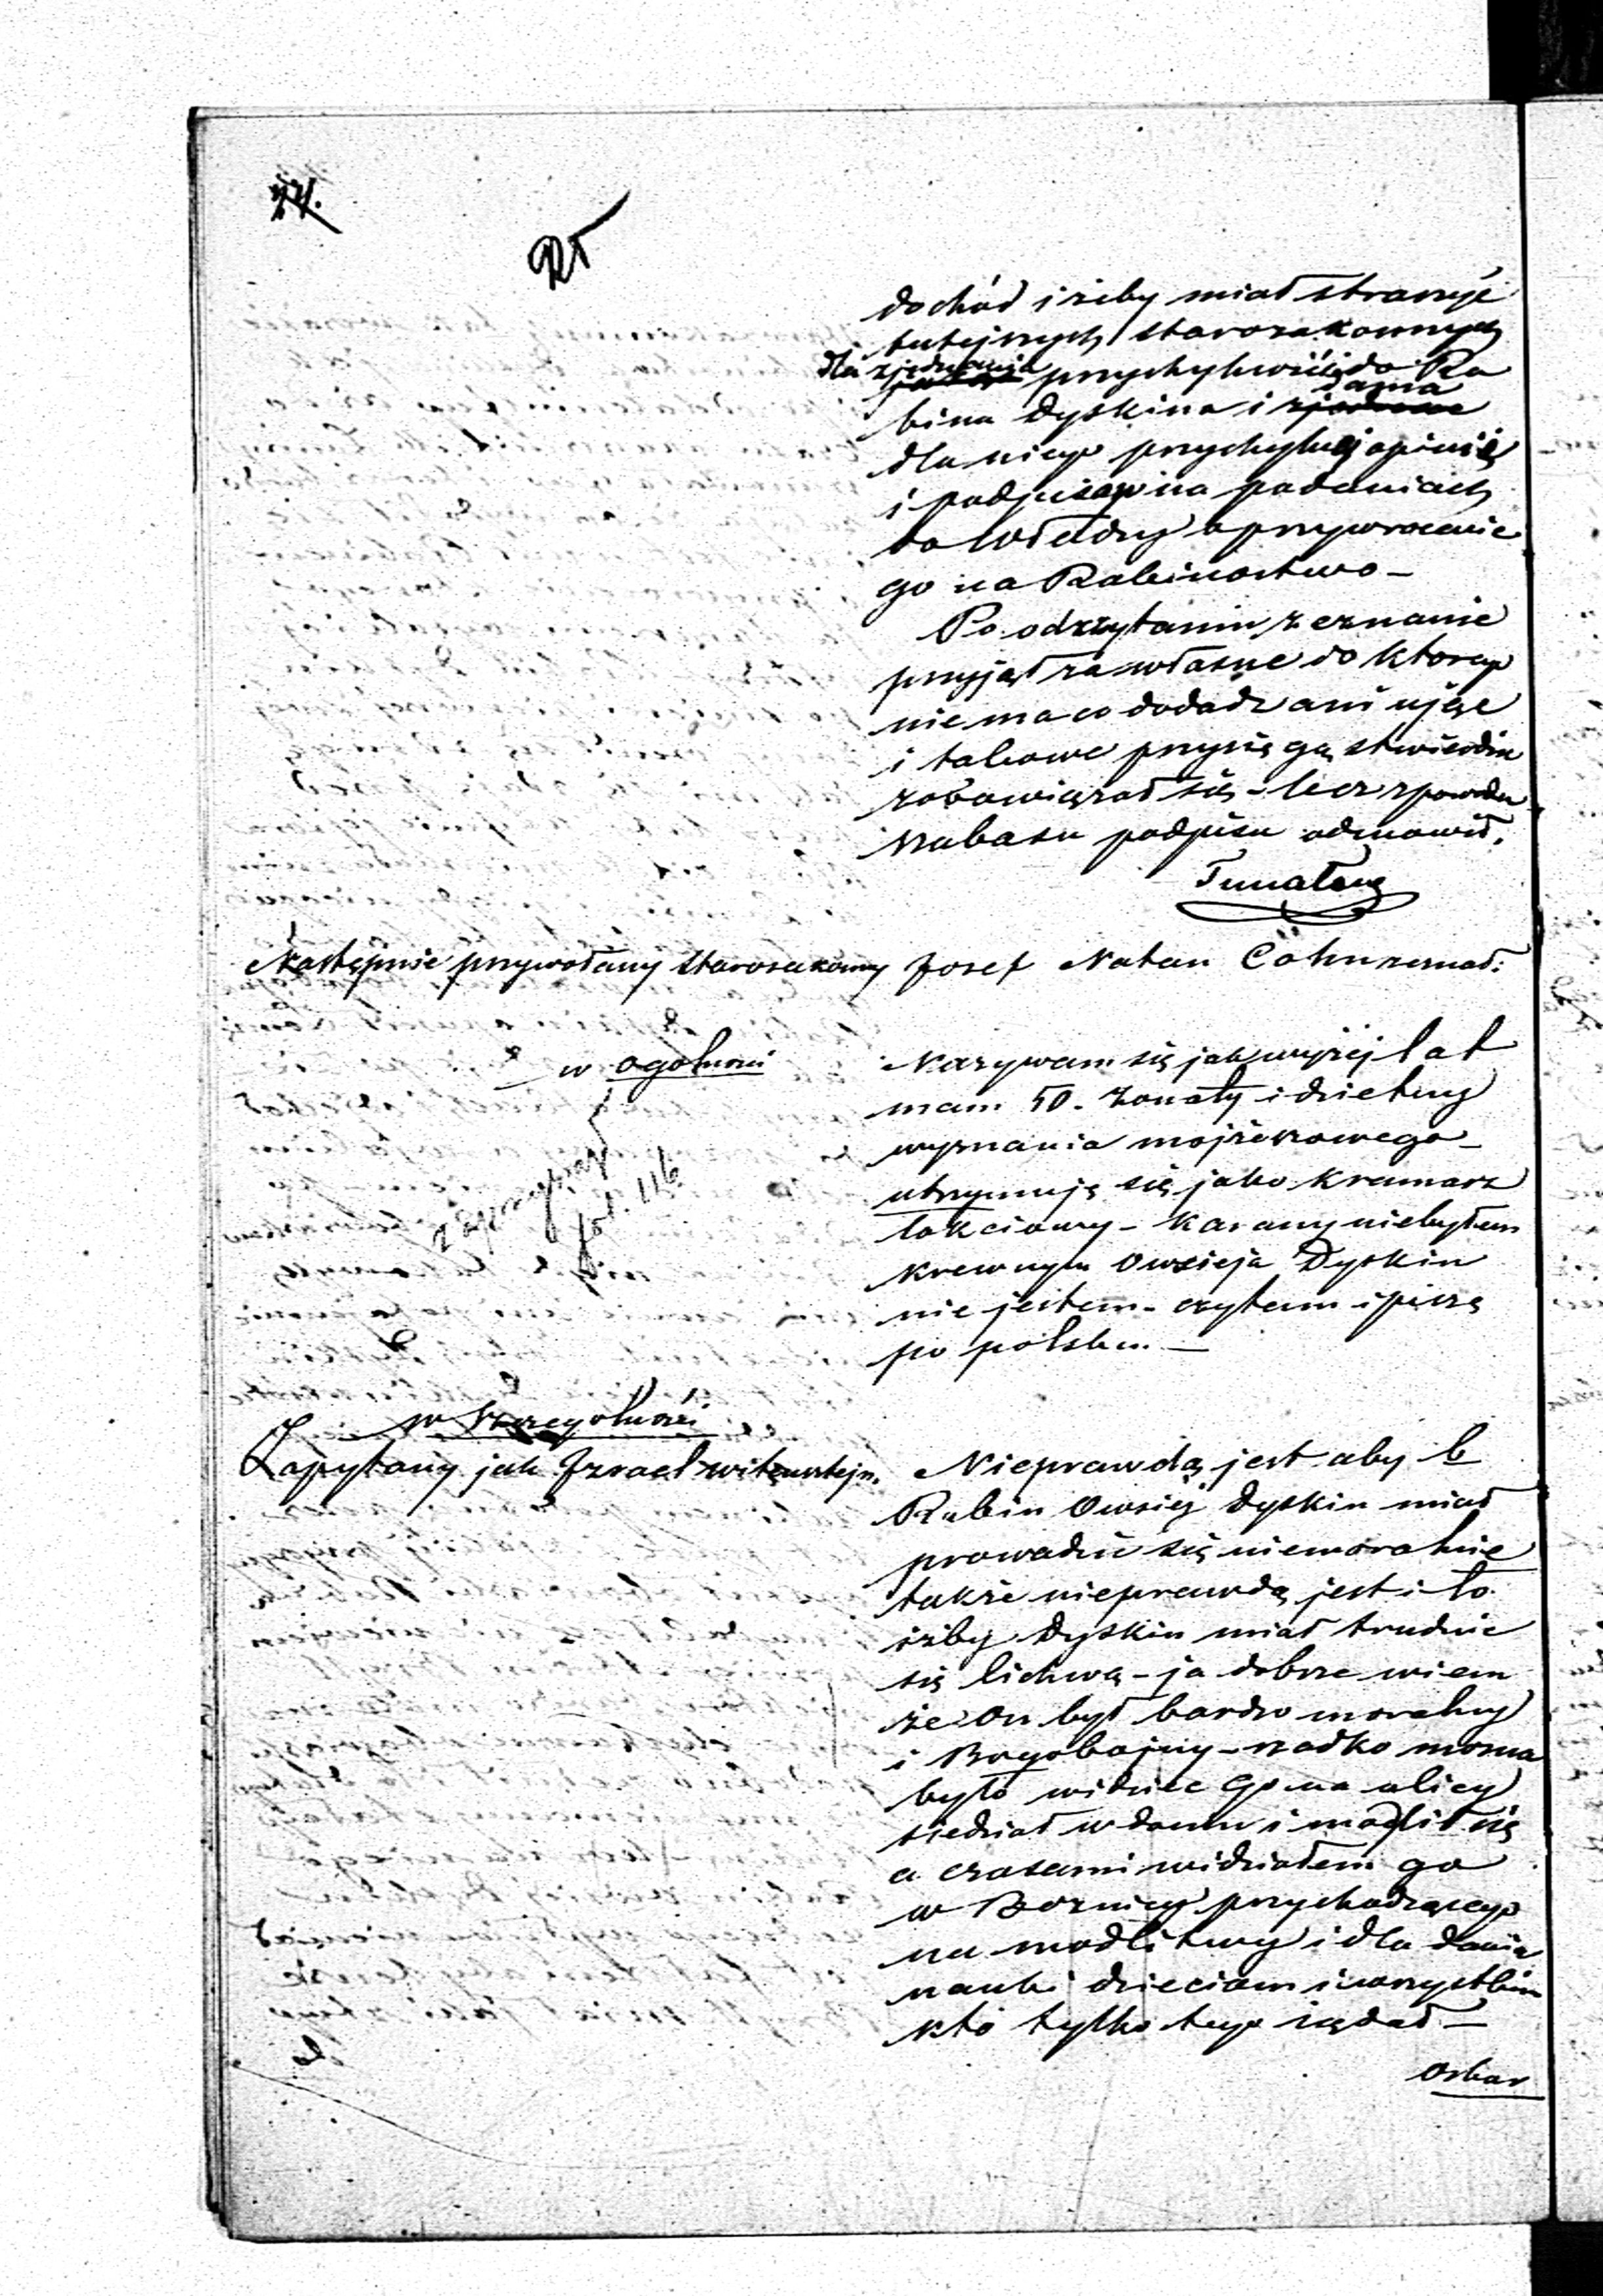 24.
dochód i żeby miał straszyć
tutejszych starozakonnych
dla zjednania przychylności do Ra
bina Dyskina i dania
dla niego przychylnej opinię
i podpisów na podaniach
do Władzy o przywrocenie
go na Rabinostwo –
Po odczytaniu zeznanie
przyjął za własne do ktorego
nie ma co dodadz ani ująć
i takowe przysięgą stwierdzić
zobowiązał się – lecz z powodu
szabasu podpisu odmowił.
Następnie przywołany starozakonny Josef Natan Cöhn zeznał:
w ogolności
Nazywam się jak wyżej lat
mam 50. żonaty i dzietny
wyznania mojżeszowego –
utrzymuję się jako kramarz
łokciowy – karany niebyłem
krewnym Owsieja Dyskin
nie jestem – czytam i piszę
po polsku. –
z przysięgą
fol. 116
w szczegolności
Zapytany jak Izrael
Nieprawdą jest aby b
Rabin Owsiej Dyskin miał
prowadzić się niemoralnie
także nieprawdą jest i to
iżby Dyskin miał trudnić
się lichwą – ja dobrze wiem
że On był bardzo moralny
i Bogobojny – rzadko można
było widziec Go na ulicy
siedział w domu i modlił się
a czasami widziałem go
w Boznicy przychodzącego
na modlitwy i dla dania
nauki dzieciom i wszystkim
kto tylko tego żądał –